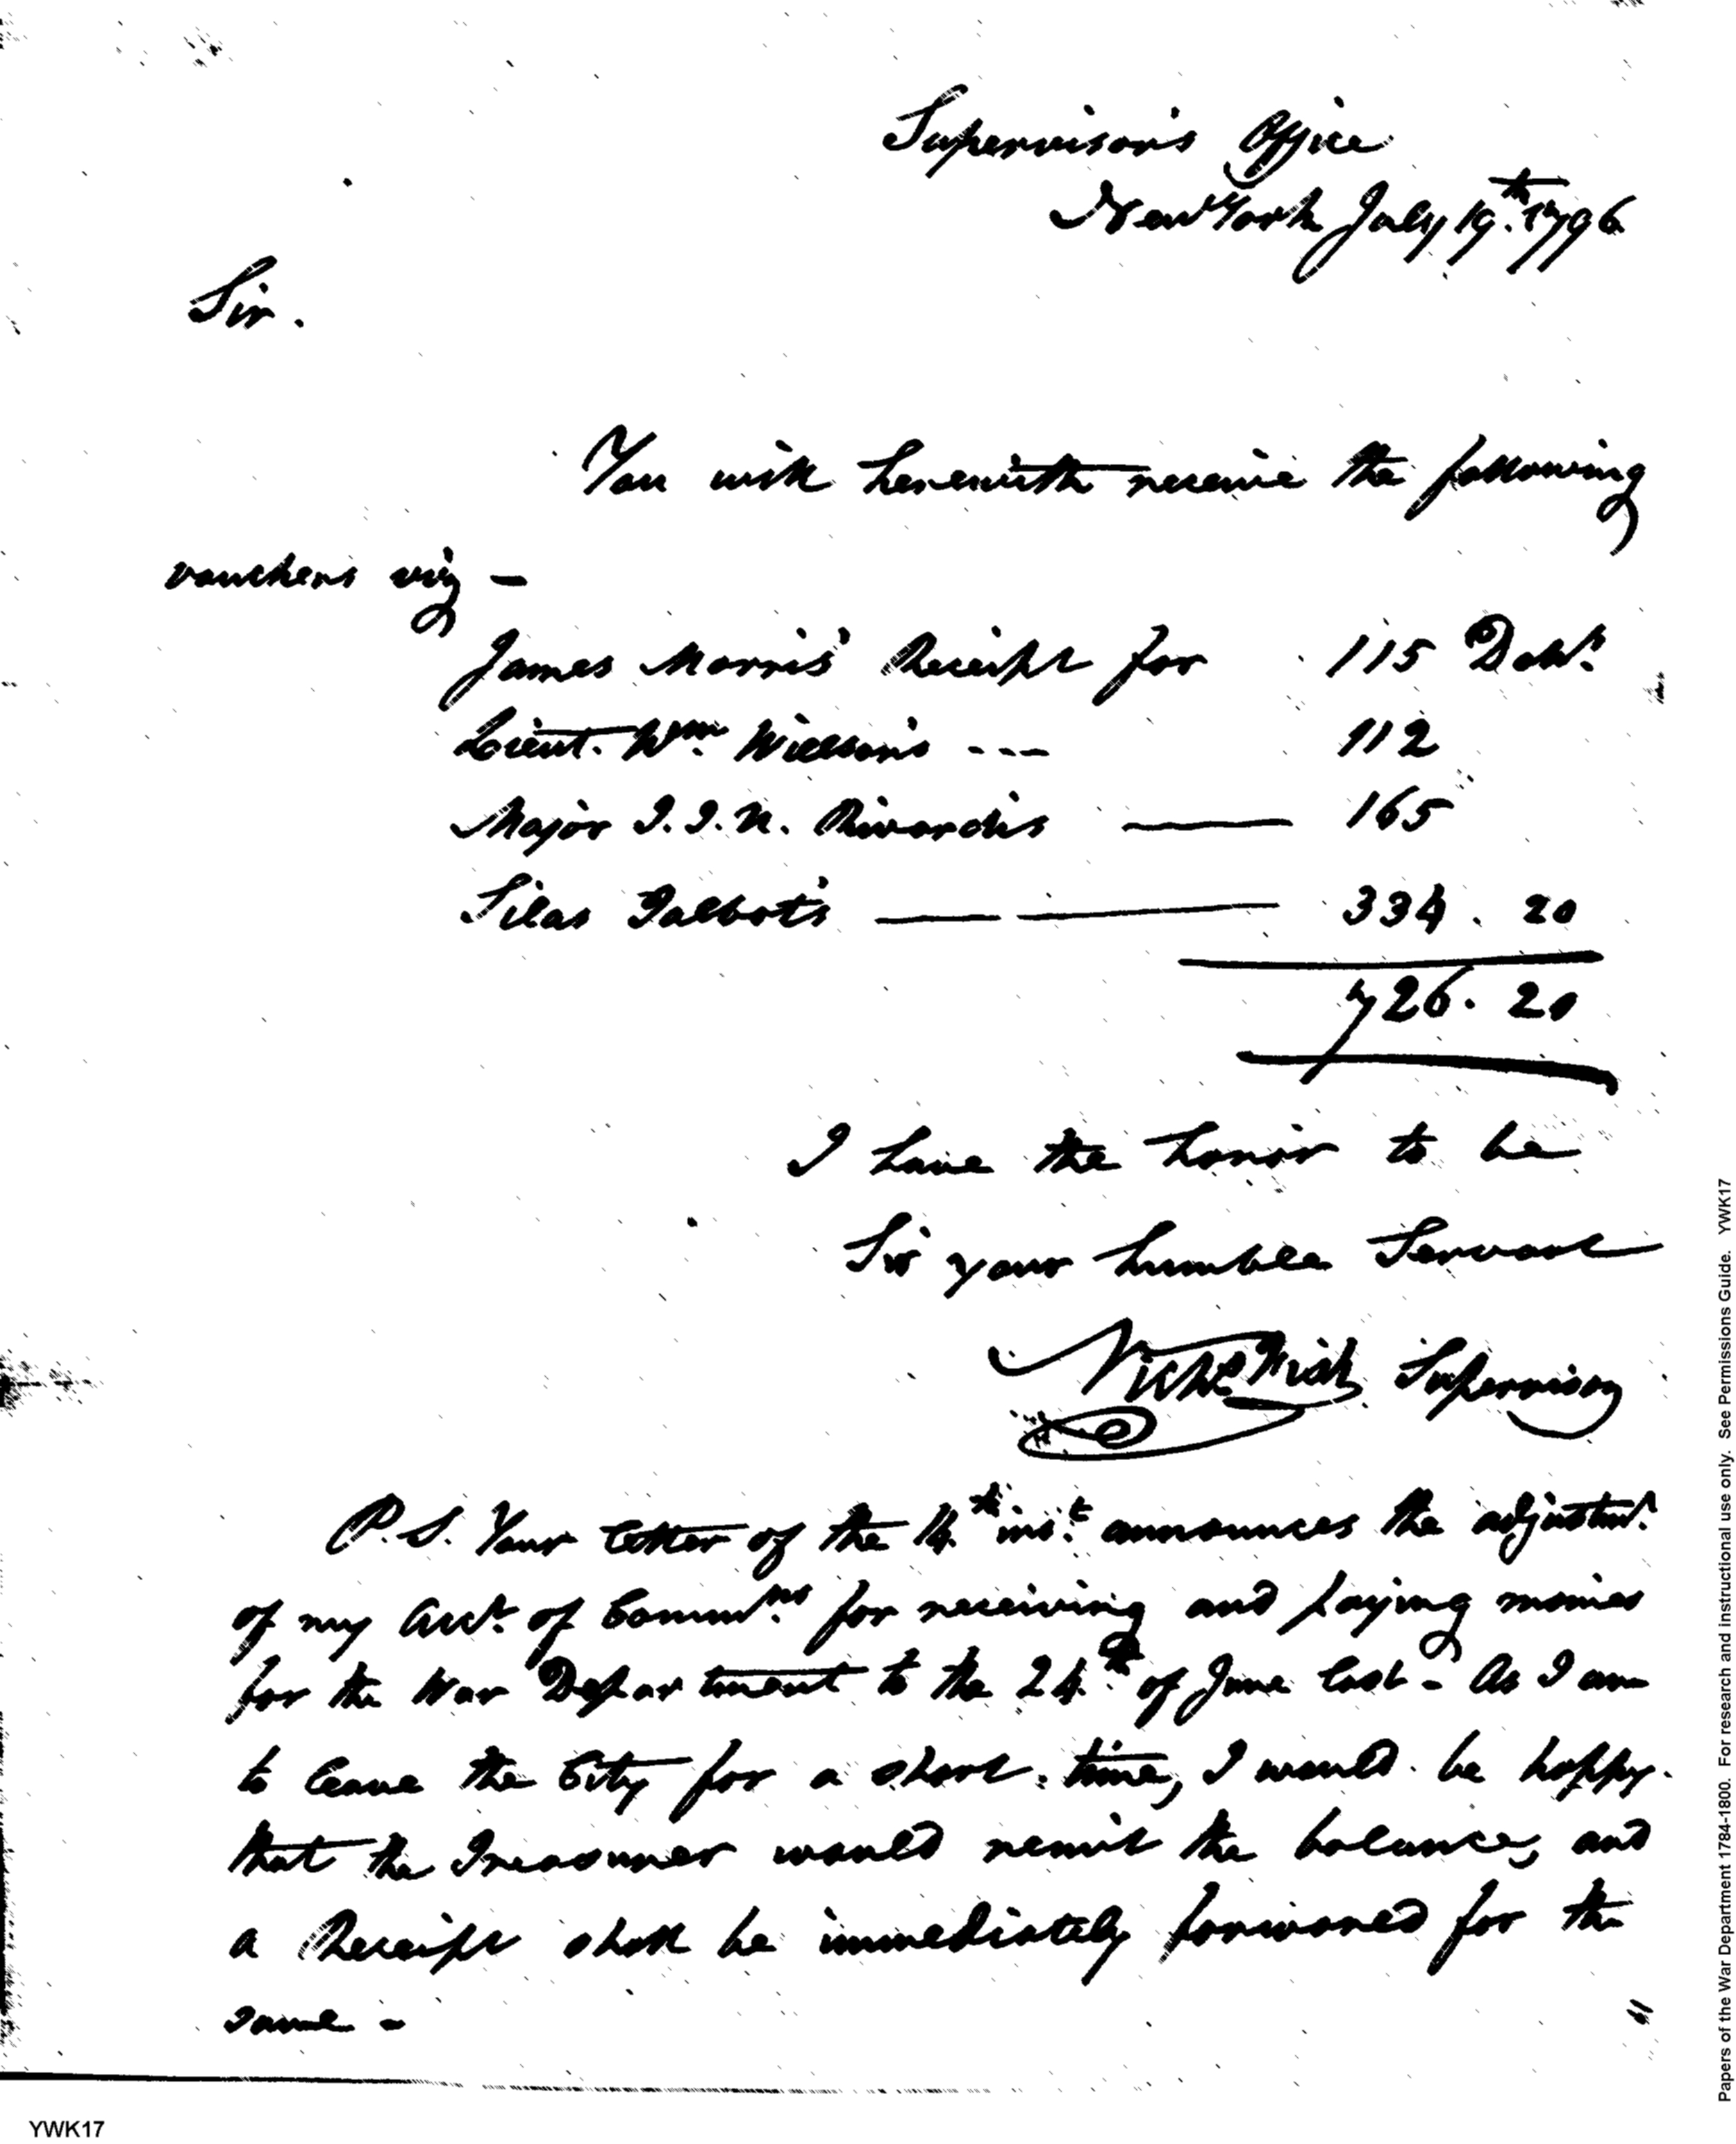 Supervisor's Office
New York July 19th. 1796
Sir.
You will herewith receive the following
vouchers viz –
James Morris' Receipt for 115 Doll.s
Lieut. Wm. Willson's --- 112
Major I. I. U. Rivardis — 165
Silas Talbot's — — 334. 20
726. 20
I have the honor to be
Sir your humble Servant
Nichs Fish Supervisor
P.S. Your letter of the 14th. inst. announces the adjustmt.
of my Acct. of Commns. for receiving and paying monies
for the War Department to the 24th. of June last – As I am
to leave the City for a short time, I would be happy
that the Treasurer would remit the balance, and
a Receipt shall be immediately forwarded for the
same –
Papers of the War Department 1784-1800. For research and instructional use only. See Permissions Guide. YWK17
YWK17